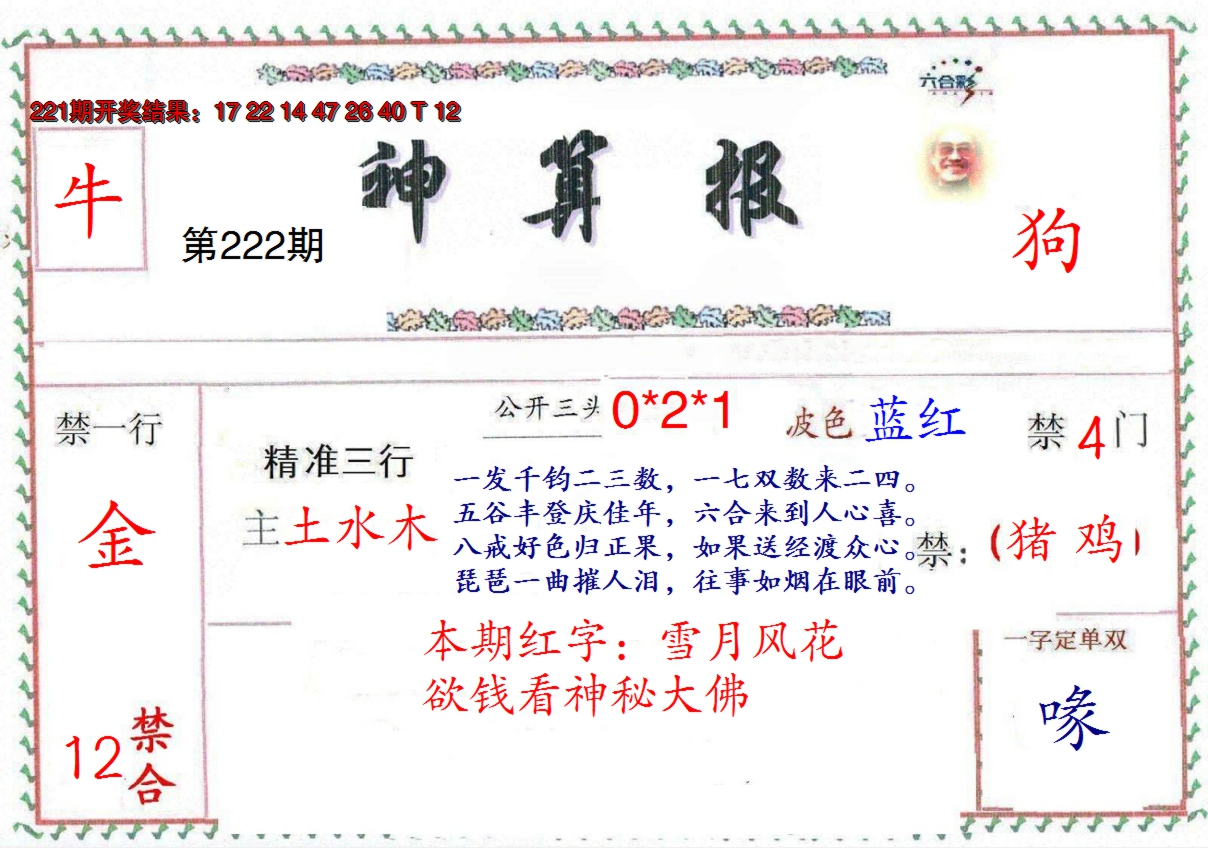 六合彩
221期开奖结果：17 22 14 47 26 40 T 12
牛
神算报
第222期
狗
禁一行
公开三头 0*2*1
波色 蓝红
禁4门
精准三行
主土水木
金
一发千钧二三数，一七双数来二四。
五谷丰登庆佳年，六合来到人心喜。
八戒好色归正果，如果送经渡众心。
琵琶一曲摧人泪，往事如烟在眼前。
禁：(猪 鸡)
本期红字：雪月风花
欲钱看神秘大佛
一字定单双
喙
12禁合